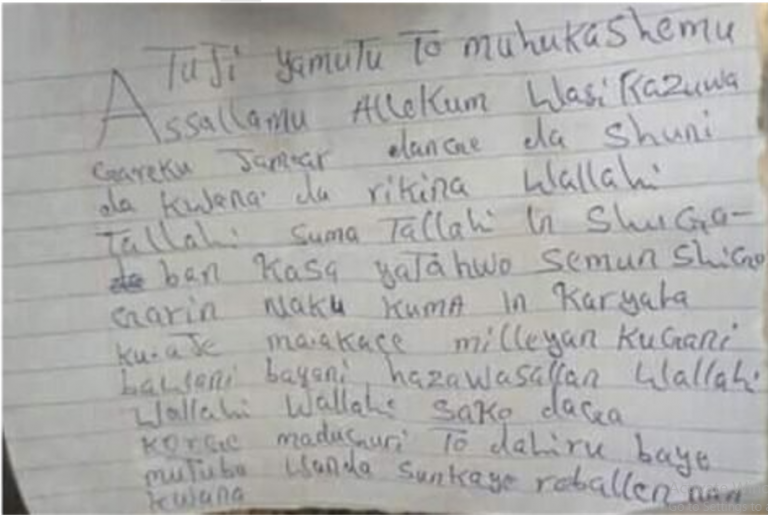 TuJi yamutu To muhukashemu
Assallamu Allekum Wasikazuwa
Gareku Jamaar dancae da Shuni
da kwana da rikina Wallahi
Tallahi Suma Tallahi In ShuGa-
ban Kasa yatahwo Semun ShiGo
Garin Naku kuma In Karyata
ku.aJe ma.akace milleyan kuGani
bawani bayani hazawasallan Wallahi
Wallahi Wallahi Sako daGa
korGe maduGuri To dahiru baye
mutuba Wanda Sunkaye raballen nan
kwana